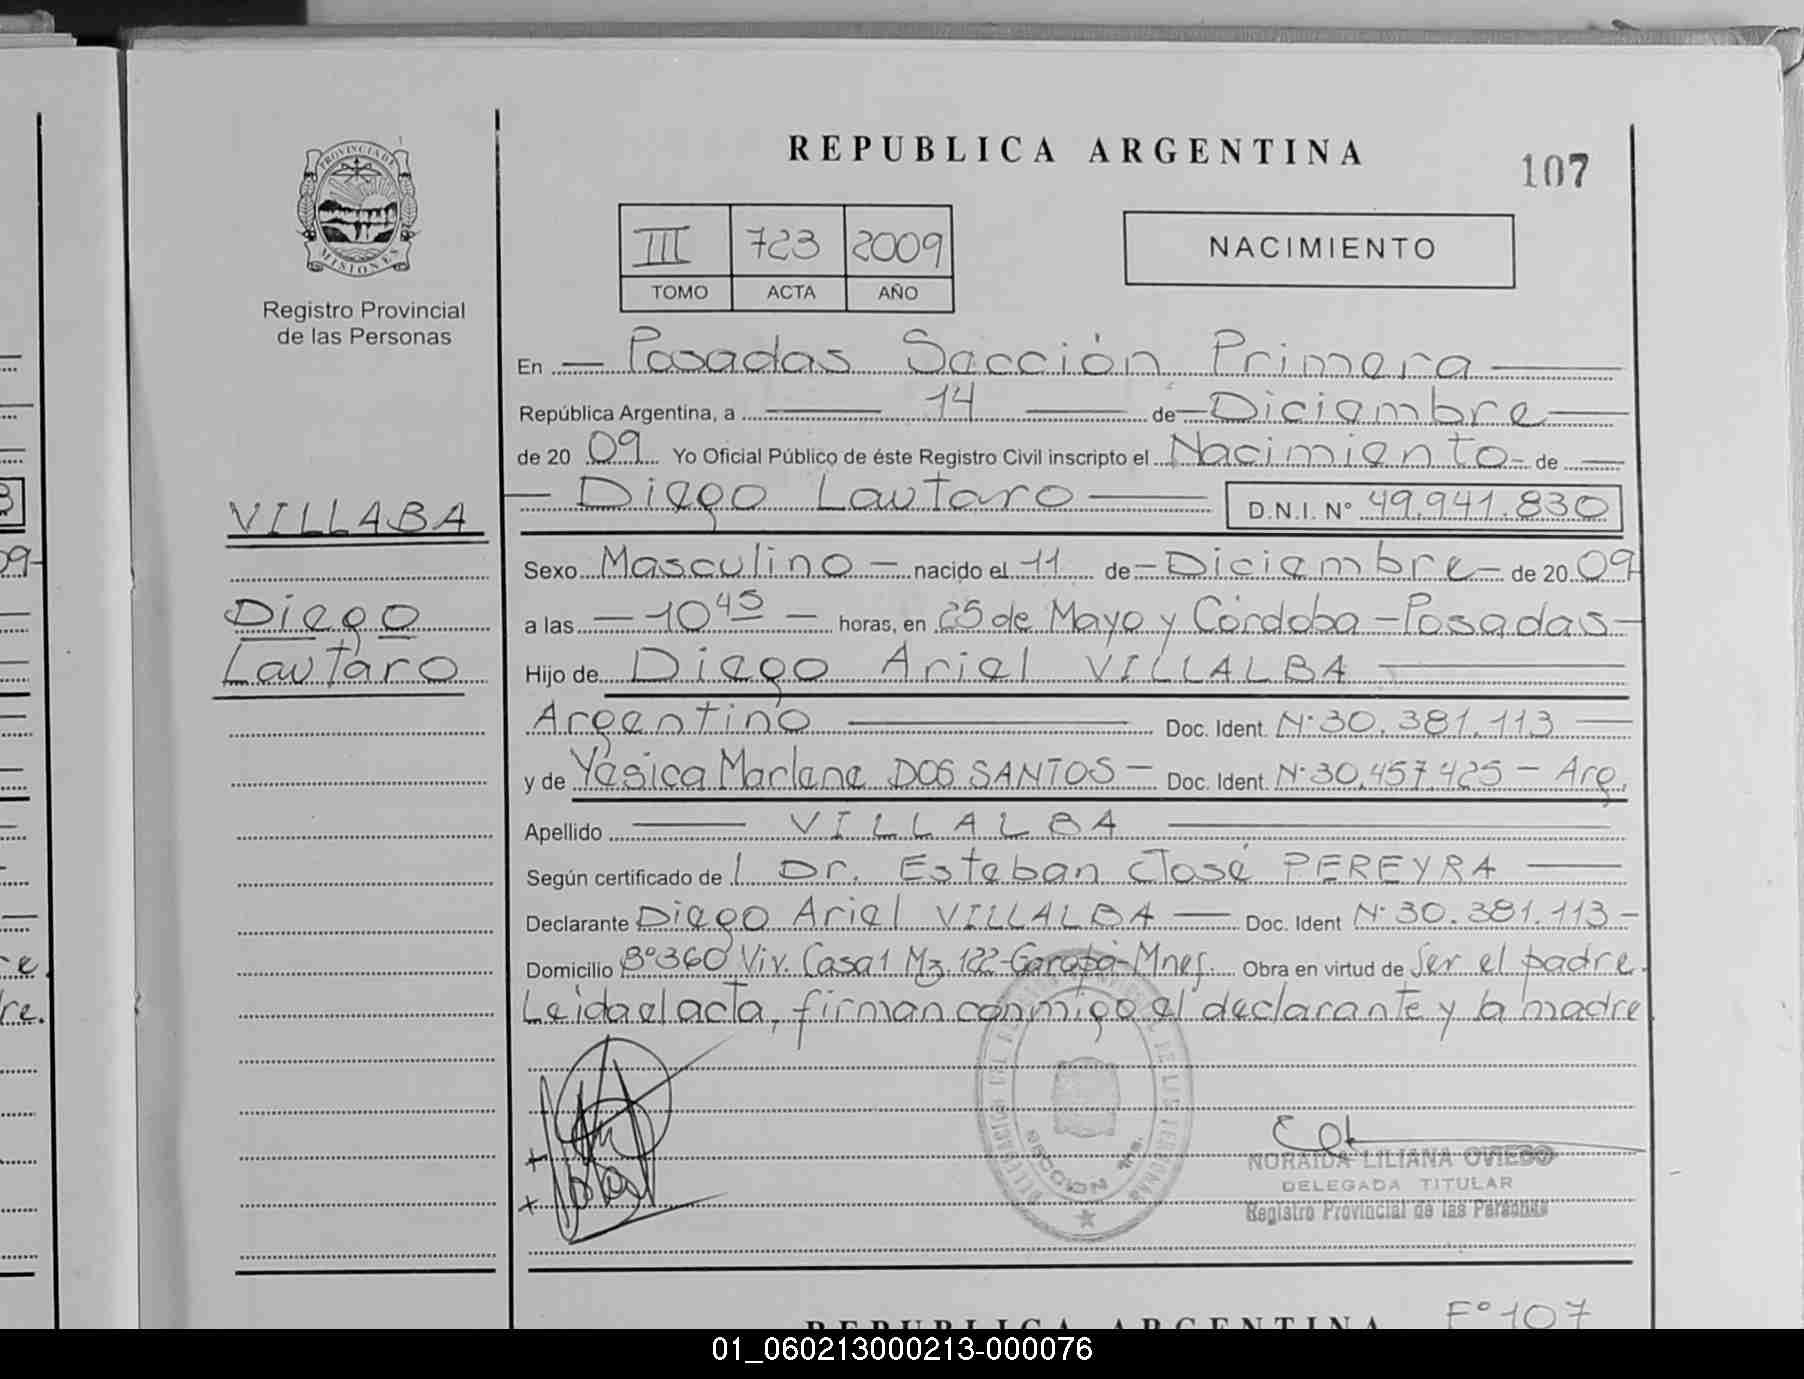 PROVINCIA DE
MISIONES
Registro Provincial
de las Personas
VILLABA
Diego
Lautaro
REPUBLICA ARGENTINA
107
III 723 2009
TOMO ACTA AÑO
NACIMIENTO
En Posadas Sección Primera
República Argentina, a 14 de Diciembre
de 20 09 Yo Oficial Público de éste Registro Civil inscripto el Nacimiento de
Diego Lautaro D.N.I. N° 49.941.830
Sexo Masculino nacido el 11 de Diciembre de 20 09
a las 10 45 horas, en 25 de Mayo y Córdoba - Posadas
Hijo de Diego Ariel VILLALBA
Argentino Doc. Ident. N° 30.381.113
y de Yesica Marlene DOS SANTOS Doc. Ident. N° 30.457.425 - Arg.
Apellido VILLALBA
Según certificado de Dr. Esteban José PEREYRA
Declarante Diego Ariel VILLALBA Doc. Ident N° 30.381.113
Domicilio B° 360 Viv. Casa 1 Mz. 122 - Garupá - Mnes. Obra en virtud de Ser el padre.
Leida el acta, firman conmigo el declarante y la madre.
SECCION 1ra.
NORAIDA LILIANA OVIEDO
DELEGADA TITULAR
Registro Provincial de las Personas
REPUBLICA ARGENTINA
F° 107
01_060213000213-000076